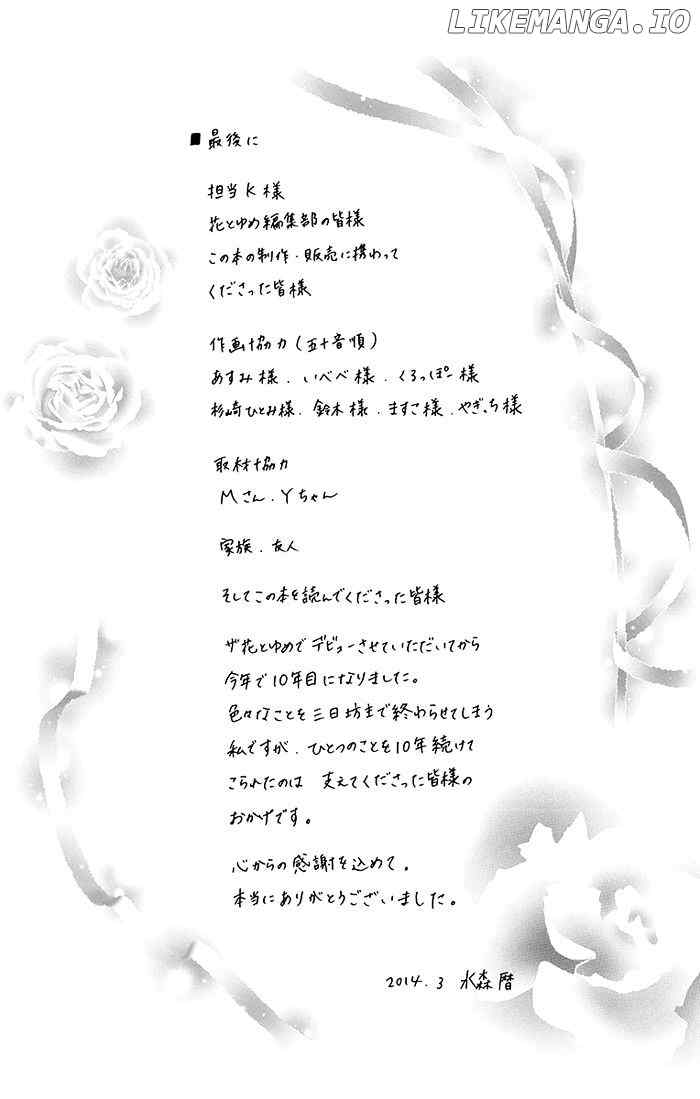 LIKEMANGA.IO
■最後に
担当K様
花とゆめ編集部の皆様
この本の制作・販売に携わって
くださった皆様
作画協力(五十音順)
あすみ様、いべべ様、くろっぽー様
杉崎ひとみ様、鈴木様、ますこ様、やぎっち様
取材協力
Mさん、Yちゃん
家族、友人
そしてこの本を読んでくださった皆様
ザ花とゆめでデビューさせていただいてから
今年で10年目になりました。
色々なことを三日坊主で終わらせてしまう
私ですが、ひとつのことを10年続けて
こられたのは 支えてくださった皆様の
おかげです。
心からの感謝を込めて。
本当にありがとうございました。
2014.3 水森暦